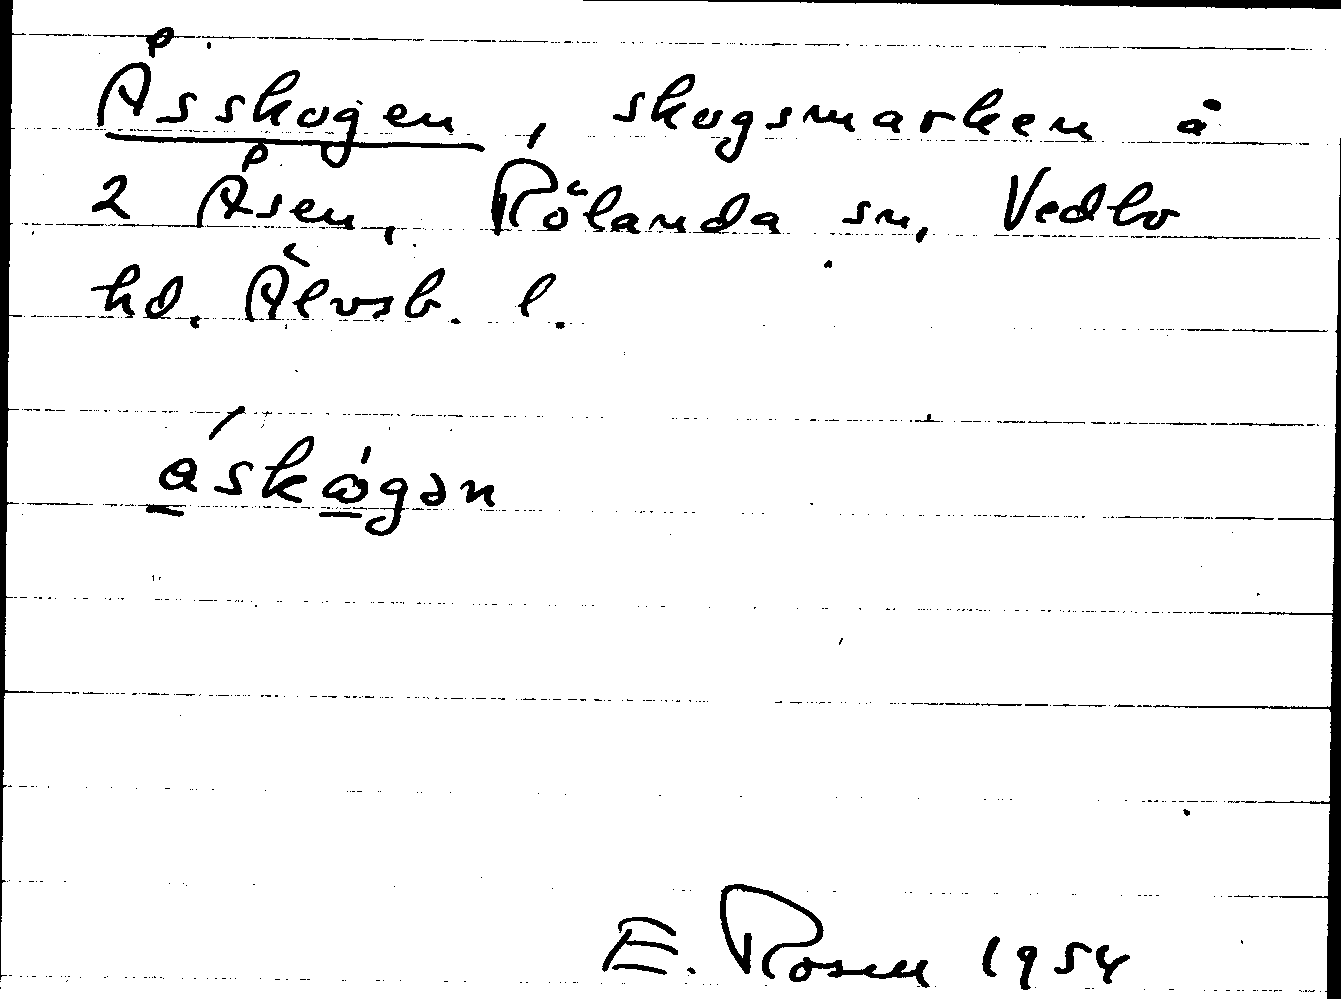 Åsskogen, skogsmarken å
2 Åsen, Rölanda sn, Vedbo
hd. Älvsb. l.
áskògən
E. Rosell 1954